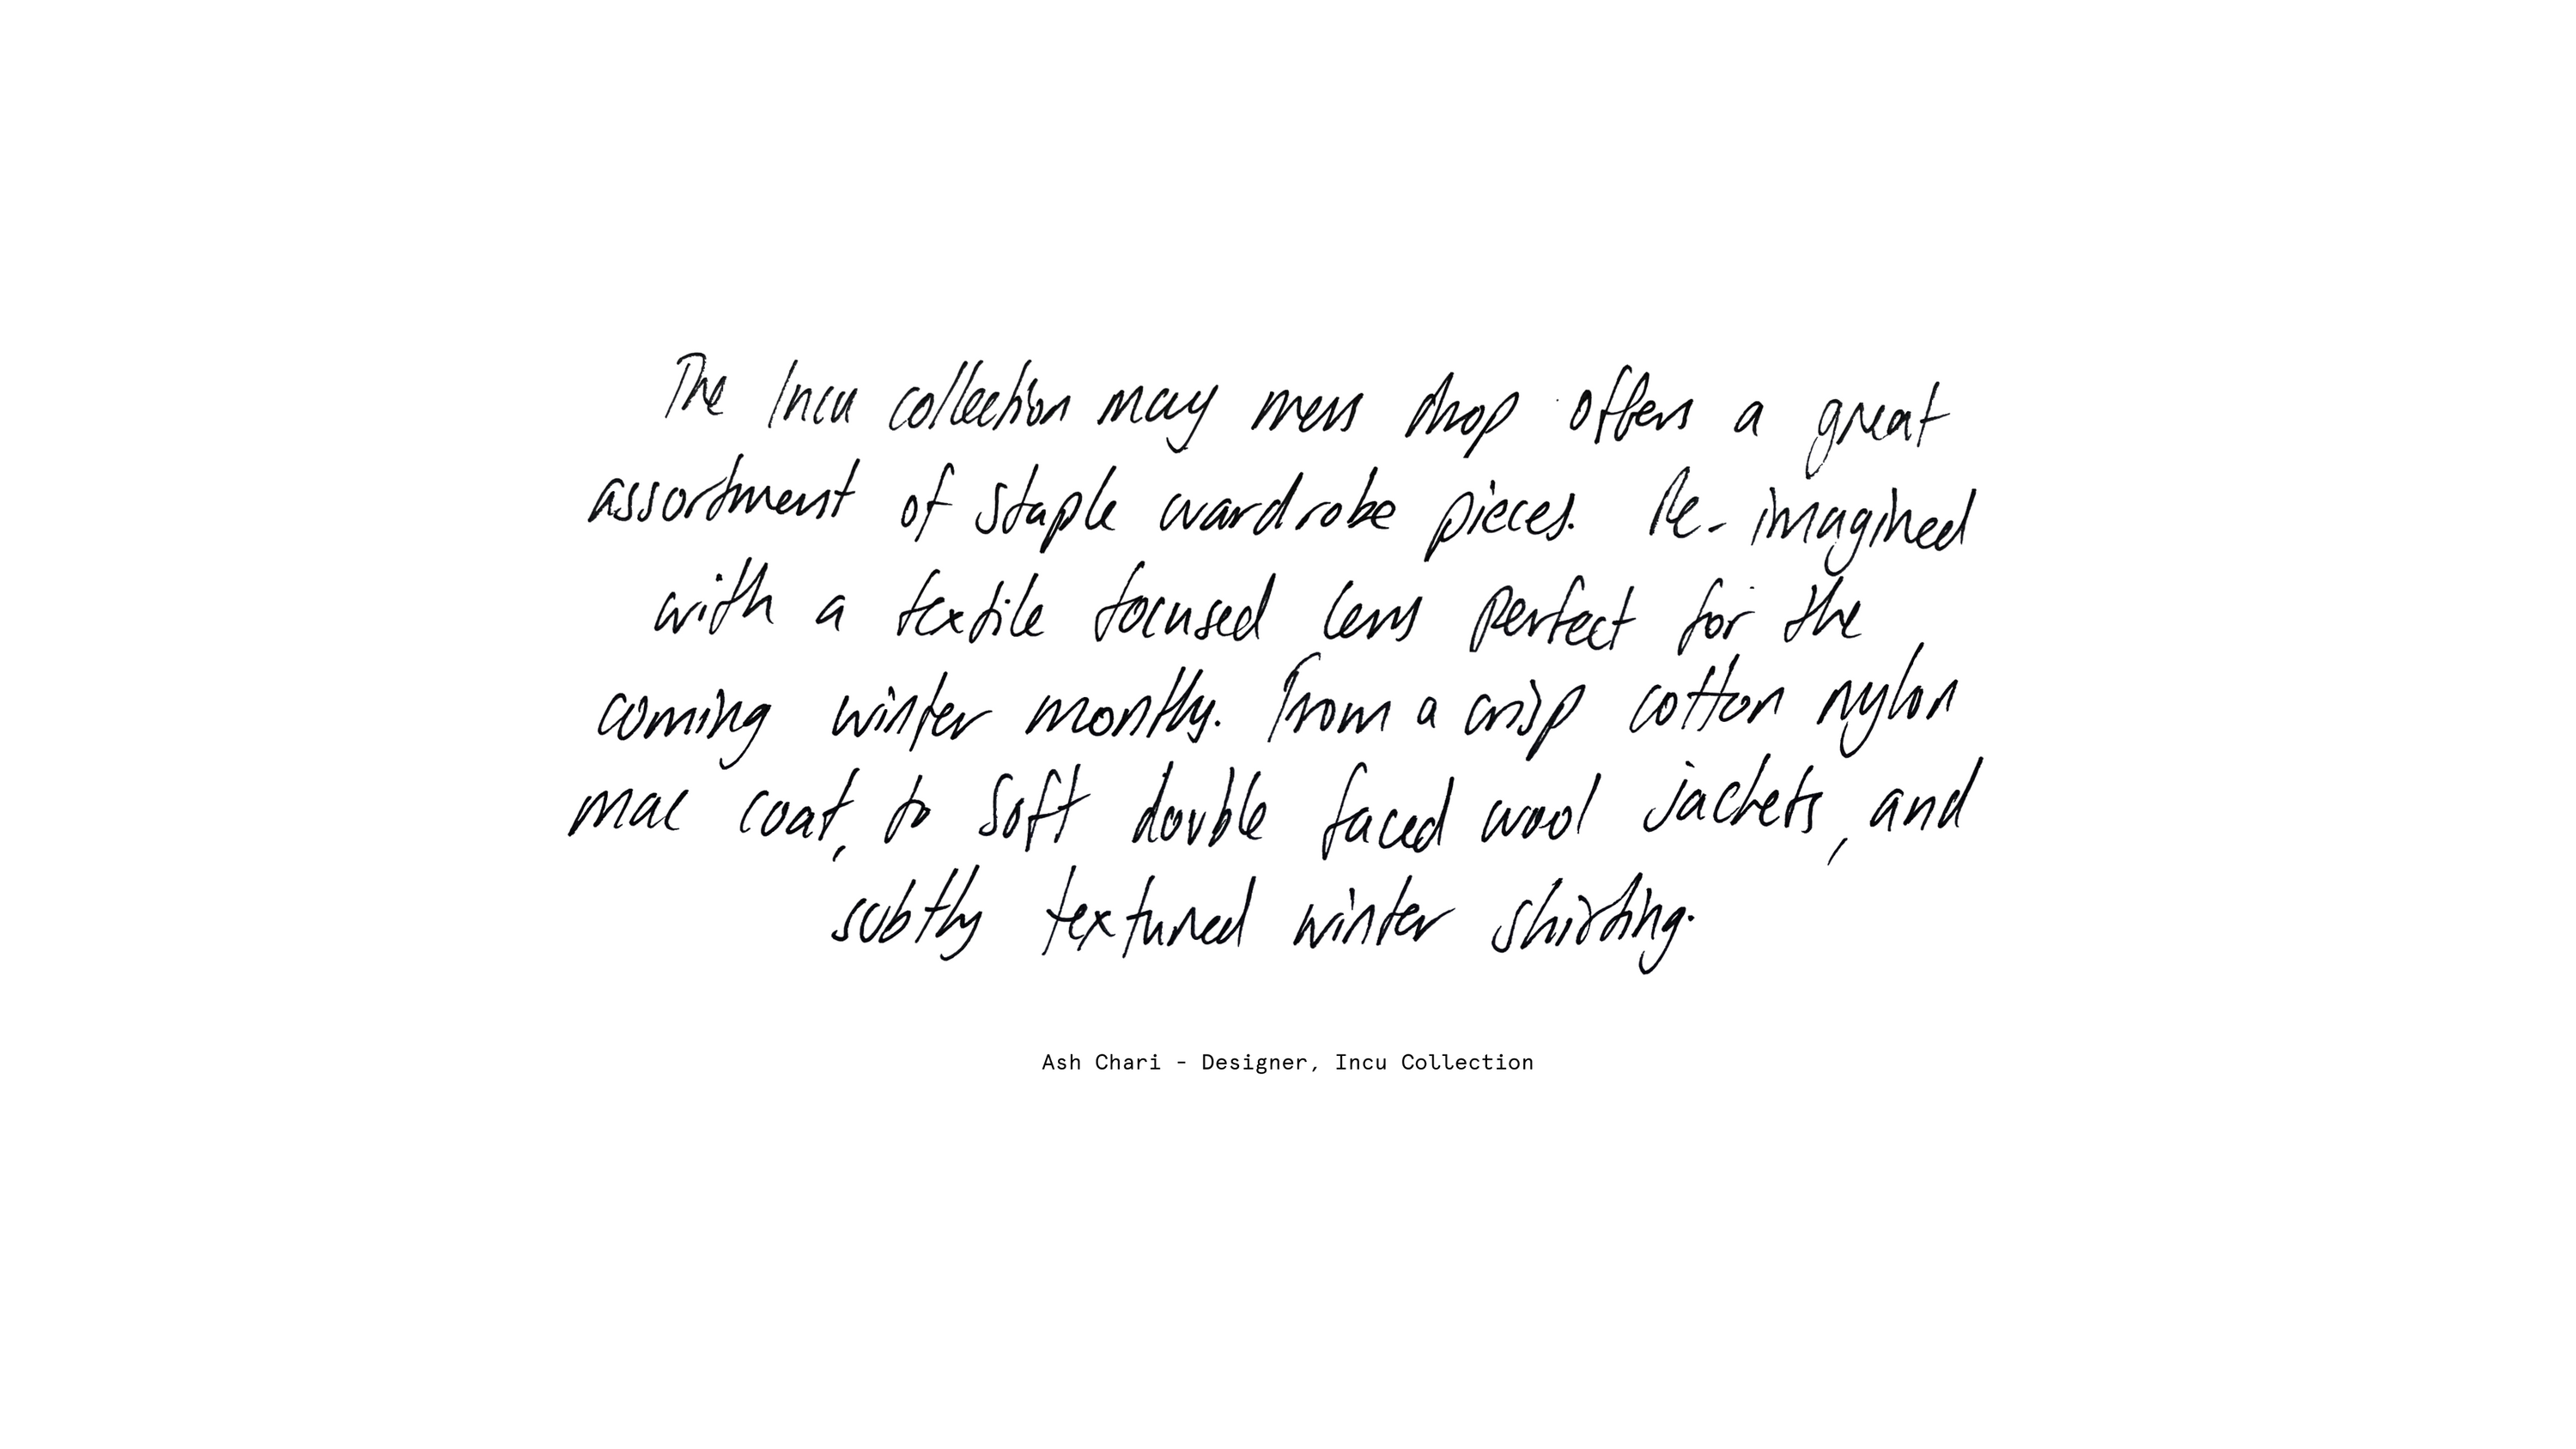 The Incu collection may mens drop offers a great
assortment of staple wardrobe pieces. Re-imagined
with a textile focused lens perfect for the
coming winter months. From a crisp cotton nylon
mac coat, to soft double faced wool jackets, and
subtly textured winter shirting.
Ash Chari - Designer, Incu Collection